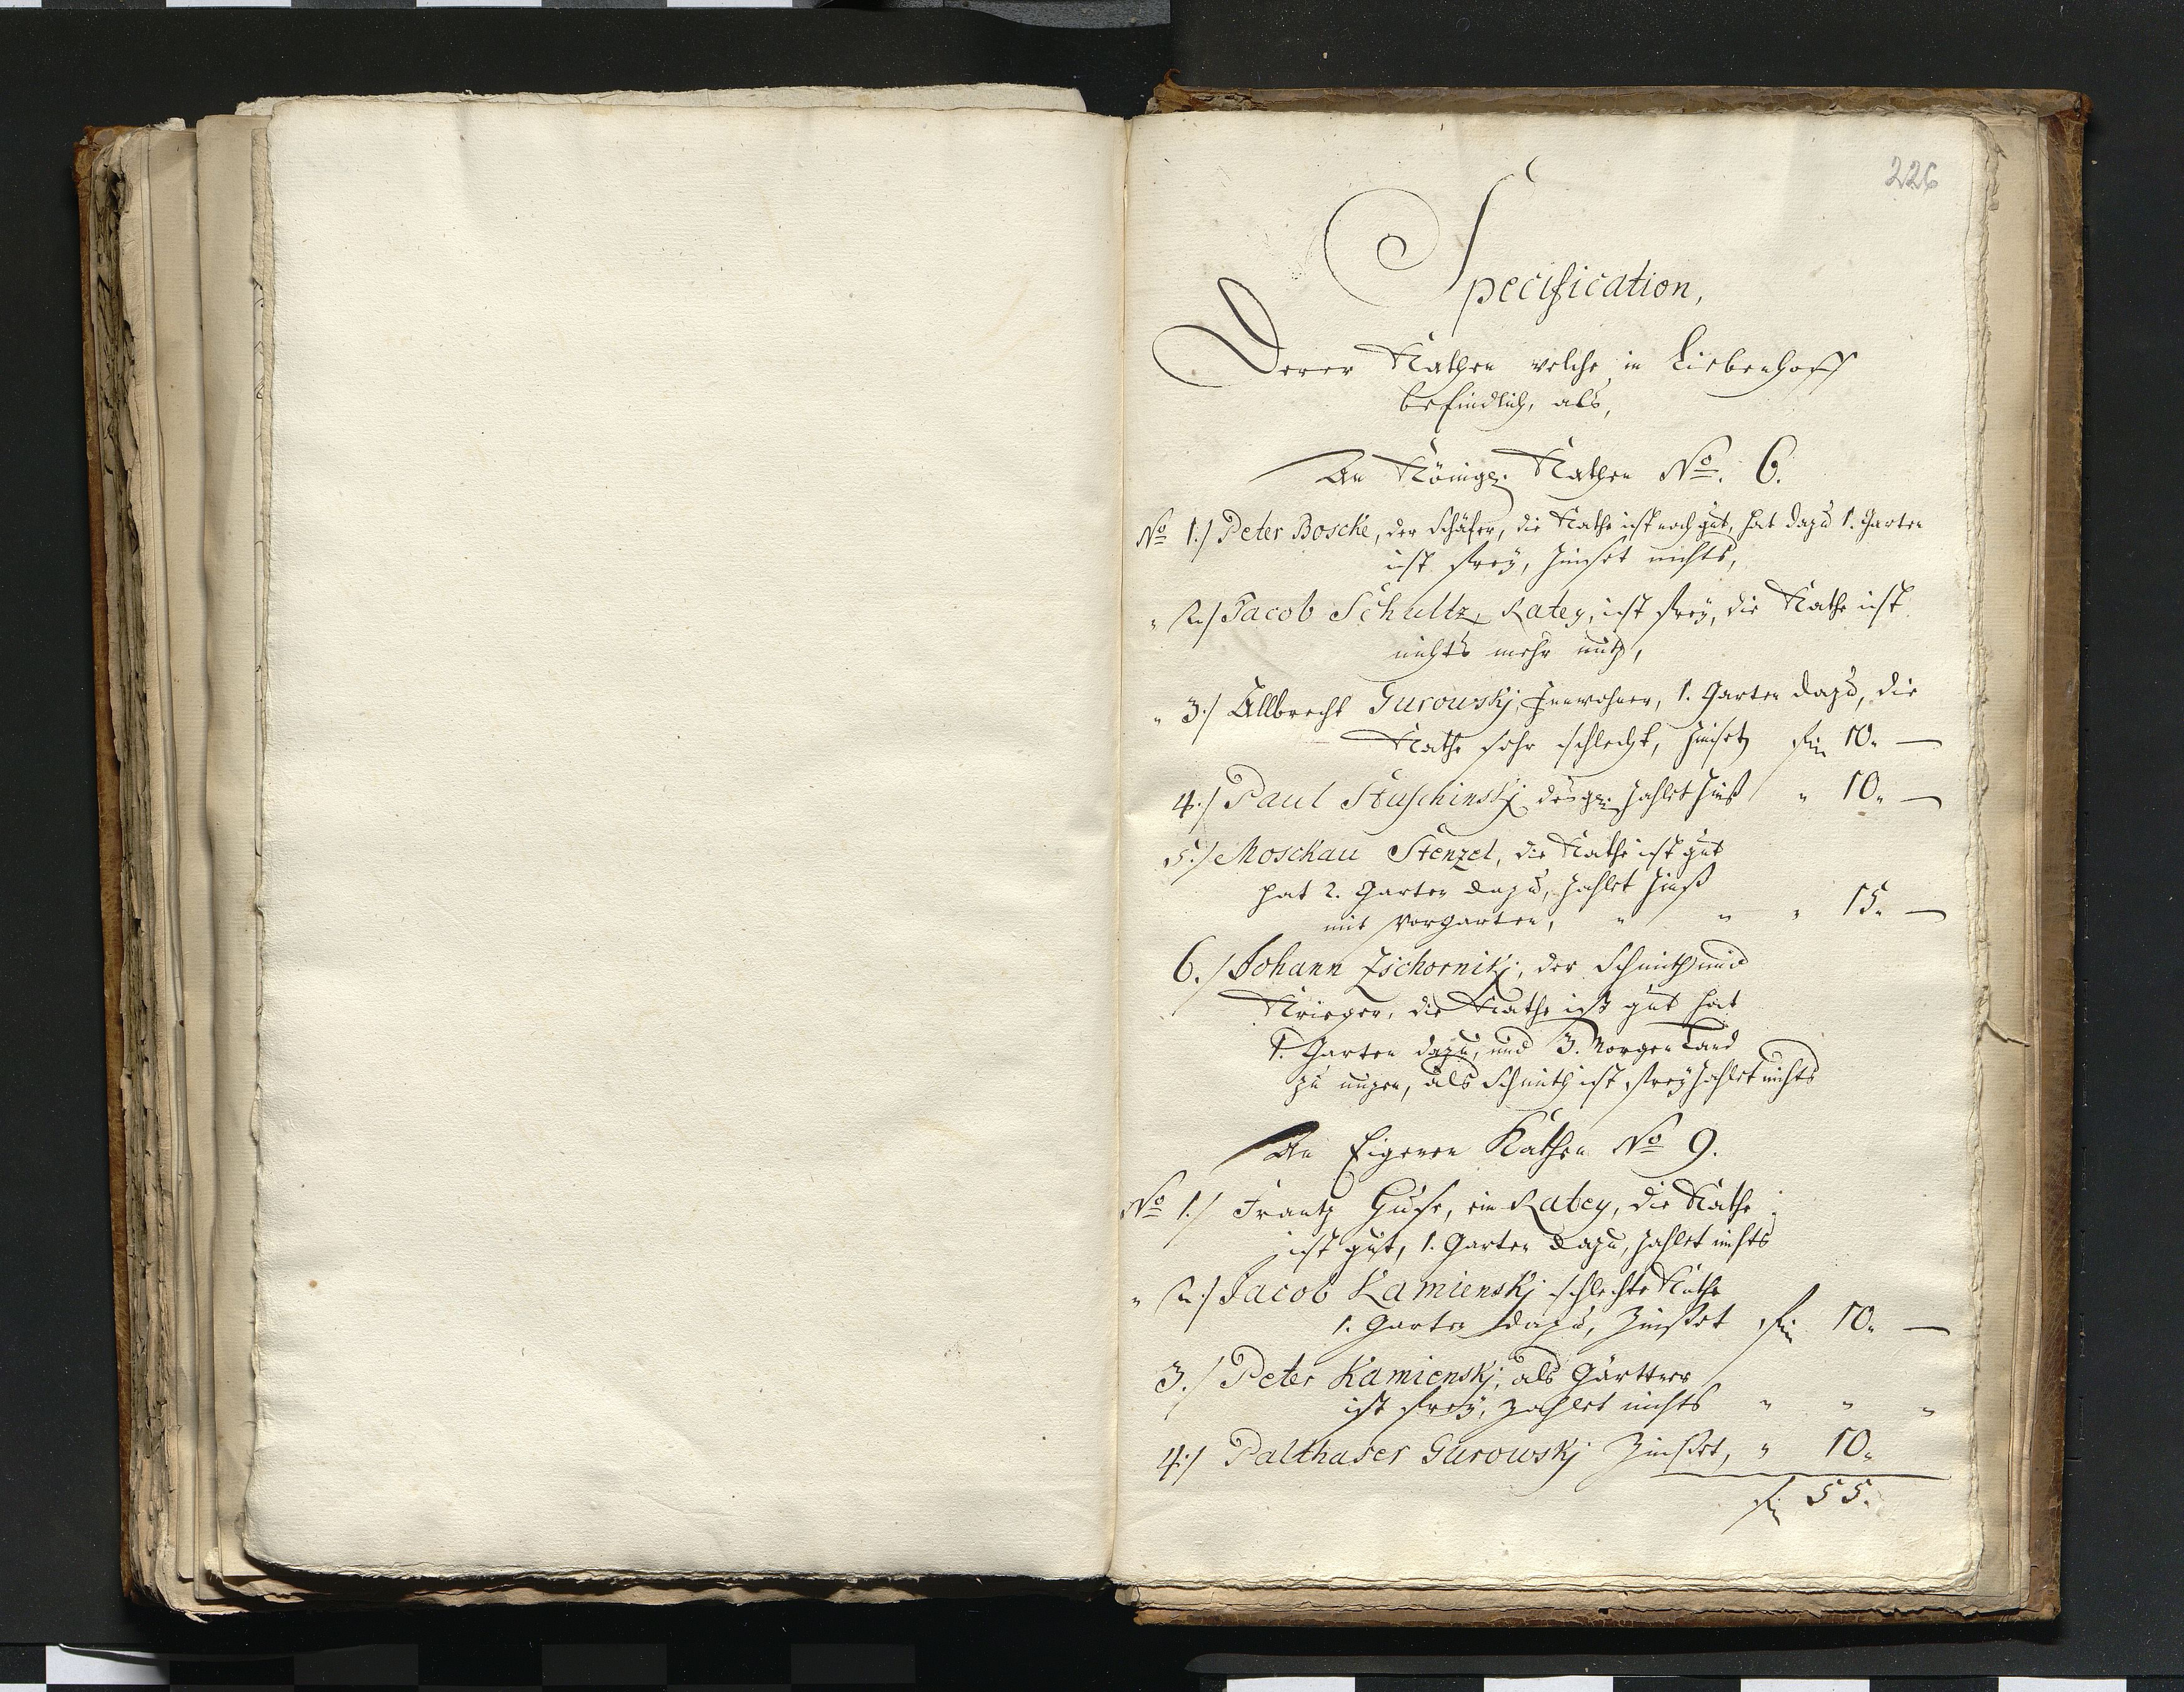 226
Specification,
Derer Kathen welche in Liebenhoff
befindlich, als,
An Königl: Kathen No. 6.
No 1./ Peter Boschke, der Schäfer, die Kathe ist noch gut, hat dazu 1. Garten
ist frey, Zinset nichts,
" 2./ Jacob Schultz, Ratey, ist frey, die Kathe ist
nichts mehr nutz,
" 3./ Allbrecht Gurowskj, Innwohner, 1. Garten dazu, die
Kathe sehr schlecht, Zinset fl 10. —
4./ Paul Stuschinskj desgl: Zahlet Zinß " 10. —
5./ Moschkau Stenzel, die Kathe ist gut
hat 2. Garten dazu, Zahlet Zinß
mit Vorgarten, " " " 15. —
6./ Johann Zschornikj, der Schmith und
Krieger, die Kathe ist gut hat
1. Garten dazu, und 3. Morgen Land
zu nuzen, als Schmith ist frey zahlet nichts
An Eigenen Kathen No 9.
No 1./ Frantz Guse, ein Ratey, die Kathe
ist gut, 1. Garten dazu, Zahlet nichts
" 2./ Jacob Kamienskj schlechte Kathe
1. Garten dazu, Zinßet fl 10. —
3./ Peter Kamienskj, als Gärttner
ist frey, Zahlet nichts " " "
4./ Palthaser Gurowskj Zinßet, " 10.
fl 55.